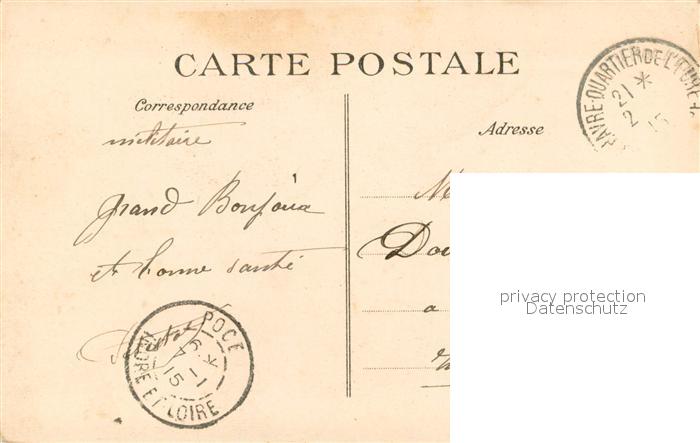 CARTE POSTALE
Correspondance
militaire
Adresse
HAVRE-QUARTIER DE L'EURE
21 *
2
15
Grand Bonjour
et bonne santé
M
Dou
a
privacy protection
Datenschutz
POCE
INDRE ET LOIRE
15